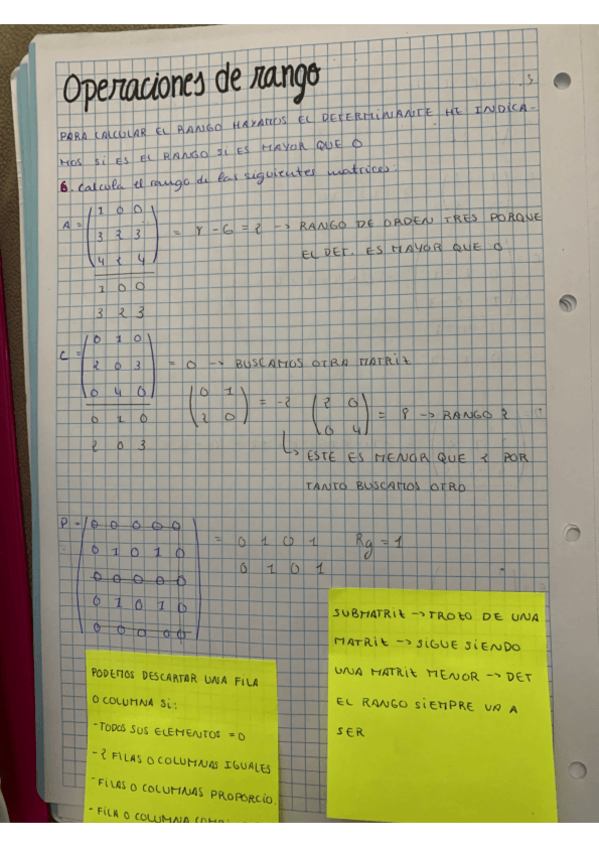 Operaciones de rango
PARA CALCULAR EL RANGO HAYAMOS EL DETERMINANTE ME INDICA-
MOS SI ES EL RANGO SI ES MAYOR QUE 0
6. Calcula el rango de las siguientes matrices:
A = 1 0 0
3 2 3 = 8 - 6 = 2 → RANGO DE ORDEN TRES PORQUE
4 2 4 EL DET. ES MAYOR QUE 0
1 0 0
3 2 3
C = 0 1 0
2 0 3 = 0 → BUSCAMOS OTRA MATRIZ
0 4 0
0 1 0
2 0 3
(0 1
2 0) = -2 (2 0
0 4) = 8 → RANGO 2
↳ ESTE ES MENOR QUE 2 POR
TANTO BUSCAMOS OTRO
D = 0 0 0 0 0
0 1 0 1 0
0 0 0 0 0
0 1 0 1 0
0 0 0 0 0
= 0 1 0 1 Rg = 1
0 1 0 1
PODEMOS DESCARTAR UNA FILA
O COLUMNA SI:
- TODOS SUS ELEMENTOS = 0
- 2 FILAS O COLUMNAS IGUALES
- FILAS O COLUMNAS PROPORCIO.
- FILA O COLUMNA
SUBMATRIZ → TROZO DE UNA
MATRIZ → SIGUE SIENDO
UNA MATRIZ MENOR → DET
EL RANGO SIEMPRE VA A
SER